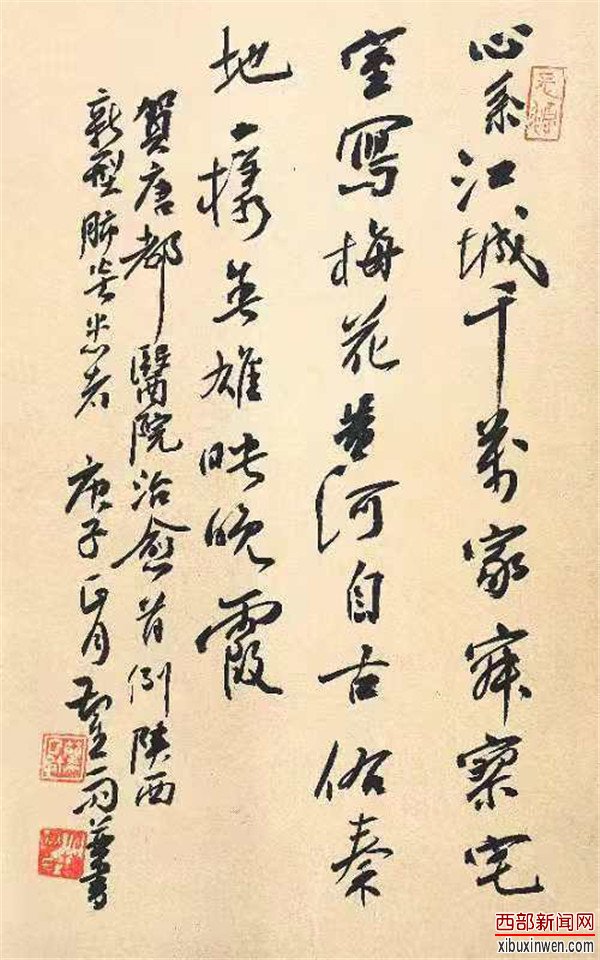 心系江城千萬家寂寥宅
室寫梅花黃河自古佑秦
地一樣英雄映晚霞
賀唐都醫院治愈首例陝西
新型肺炎患者 庚子正月
西部新闻网
xibuxinwen.com